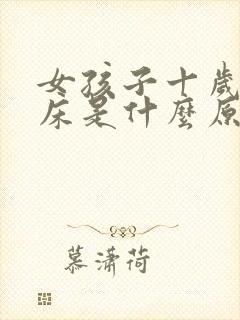 女孩子十歲
床是什麼原
慕潇荷